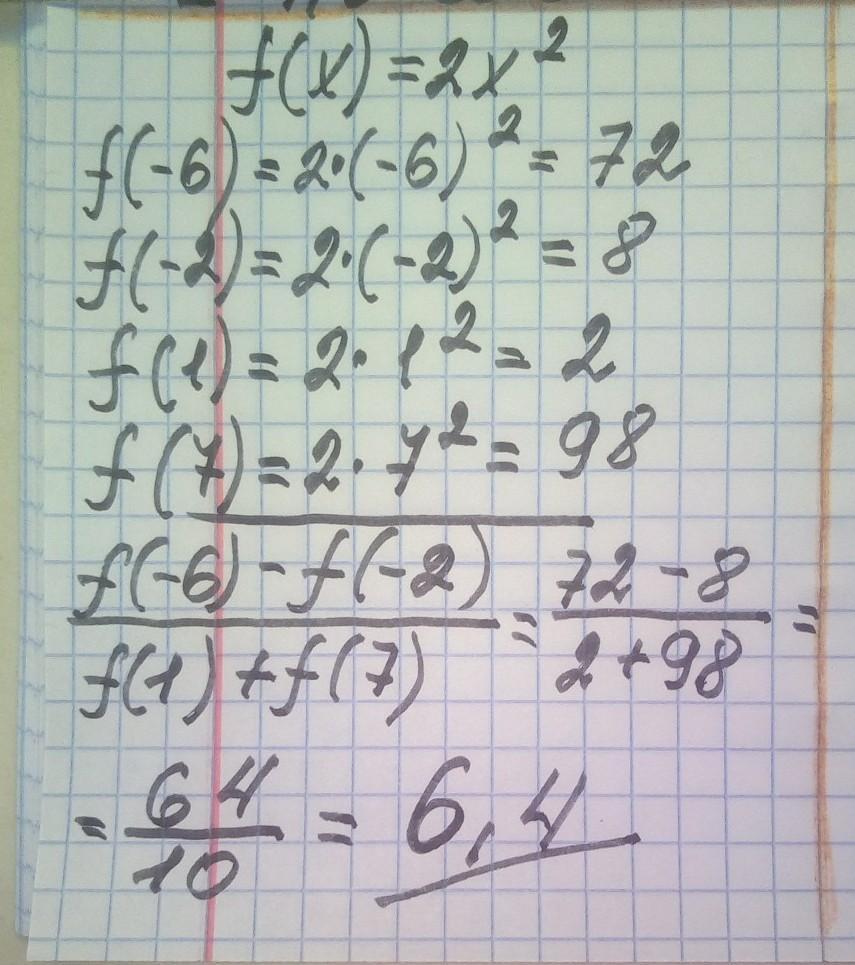 f(x) = 2x²
f(-6) = 2·(-6)² = 72
f(-2) = 2·(-2)² = 8
f(1) = 2·1² = 2
f(7) = 2·7² = 98
f(-6) - f(-2) / f(1) + f(7) = 72 - 8 / 2 + 98 =
= 64 / 10 = 6,4